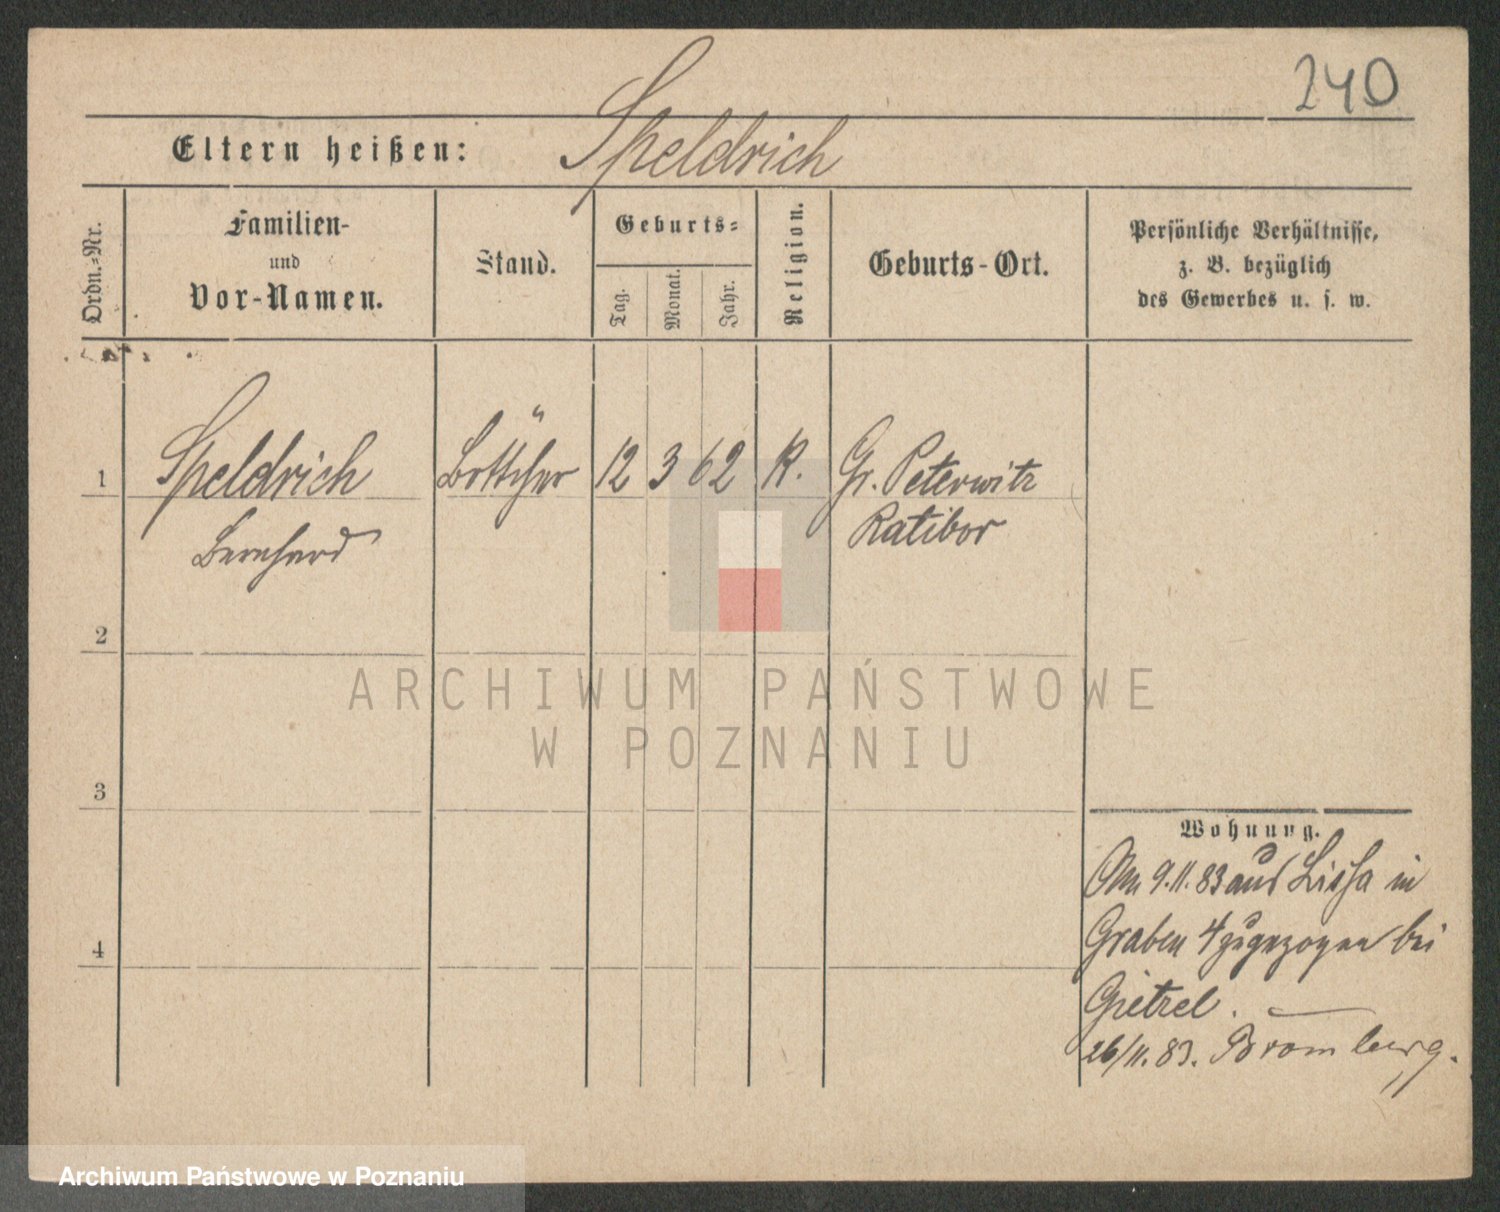 240
Eltern heißen: Speldrich
Ordn.-Nr.
Familien-
und
Vor-Namen.
Stand.
Geburts-
Tag.
Monat.
Jahr.
Religion.
Geburts-Ort.
Persönliche Verhältnisse,
z. B. bezüglich
des Gewerbes u. s. w.
1 Speldrich Böttcher 12 3 62 K. Gr. Peterwitz
Bernhard Ratibor
2
3
4
Wohnung.
Am 9.11.83 aus Lissa in
Graben 4 zugezogen bei
Gietzel.
26/11.83. Bromberg.
ARCHIWUM PAŃSTWOWE
W POZNANIU
Archiwum Państwowe w Poznaniu